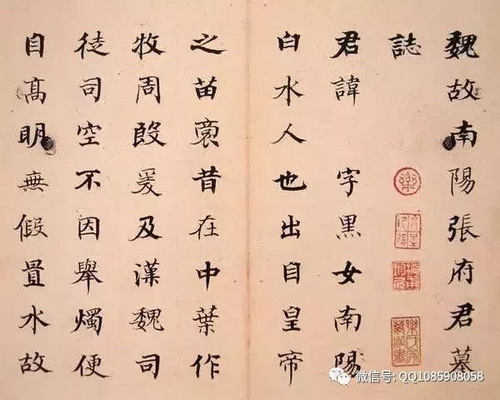 魏故南陽張府君墓
誌
君諱 字黑女南陽
白水人也出自皇帝
之苗裔昔在中葉作
牧周殷爰及漢魏司
徒司空不因舉燭便
自高明無假置水故
微信号: QQ1085908058